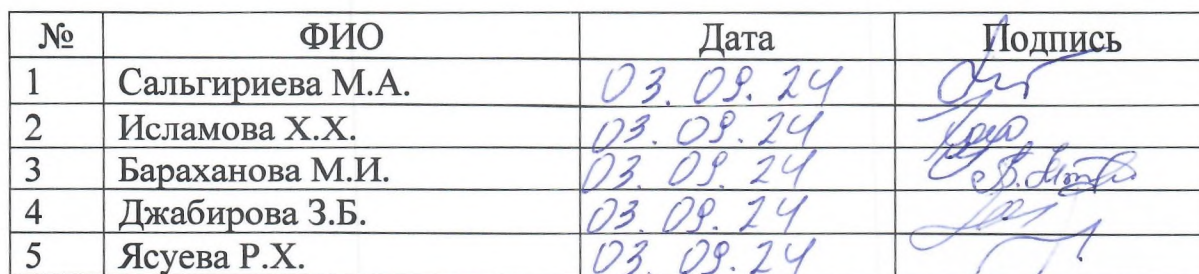 № ФИО Дата Подпись
1 Сальгириева М.А. 03.09.24
2 Исламова Х.Х. 03.09.24
3 Бараханова М.И. 03.09.24
4 Джабирова З.Б. 03.09.24
5 Ясуева Р.Х. 03.09.24